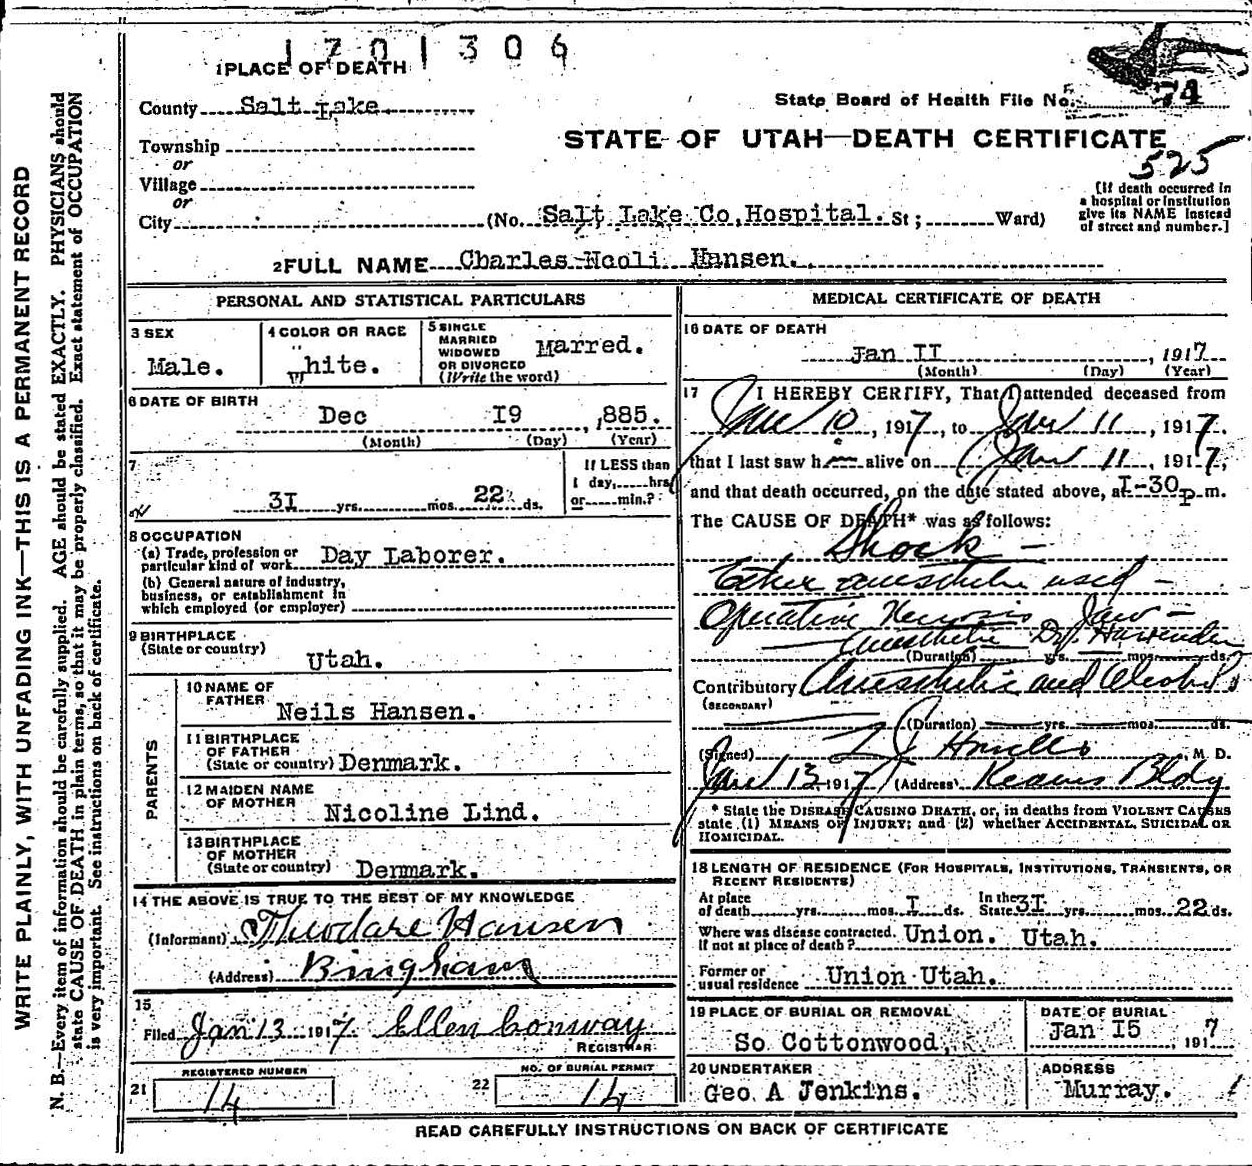 1701306
1 PLACE OF DEATH
County Salt Lake
State Board of Health File No. 74
Township
or
STATE OF UTAH—DEATH CERTIFICATE
525
Village
or
City (No. Salt Lake Co, Hospital. St; Ward)
[If death occurred in
a hospital or institution
give its NAME instead
of street and number.]
2 FULL NAME Charles Ncoli Hansen.
PERSONAL AND STATISTICAL PARTICULARS
3 SEX
Male.
4 COLOR OR RACE
White.
5 SINGLE
MARRIED
WIDOWED
OR DIVORCED
(Write the word)
Marred.
6 DATE OF BIRTH
Dec I9 ,885.
(Month) (Day) (Year)
7
3I yrs. mos. 22 ds.
If LESS than
1 day, hrs
or min.?
8 OCCUPATION
(a) Trade, profession or
particular kind of work Day Laborer.
(b) General nature of industry,
business, or establishment in
which employed (or employer)
9 BIRTHPLACE
(State or country)
Utah.
PARENTS
10 NAME OF
FATHER
Neils Hansen.
11 BIRTHPLACE
OF FATHER
(State or country) Denmark.
12 MAIDEN NAME
OF MOTHER
Nicoline Lind.
13 BIRTHPLACE
OF MOTHER
(State or country) Denmark.
14 THE ABOVE IS TRUE TO THE BEST OF MY KNOWLEDGE
(Informant) Theodare Hansen
(Address) Bingham
15
Filed Jan 13 1917 Ellen Conway
REGISTRAR
21 REGISTERED NUMBER
14
22 NO. OF BURIAL PERMIT
14
MEDICAL CERTIFICATE OF DEATH
16 DATE OF DEATH
Jan II , 1917
(Month) (Day) (Year)
17 I HEREBY CERTIFY, That I attended deceased from
Jan 10, 1917, to Jan 11, 1917,
that I last saw him alive on Jan 11, 1917,
and that death occurred, on the date stated above, at I-30 p. m.
The CAUSE OF DEATH* was as follows:
Shock —
Ether anesthetic used —
Operative Necrosis Jaw —
Anesthetic Dr J.
(Duration) yrs. mos. ds.
Contributory Anesthetic and Alcohol
(SECONDARY)
(Duration) yrs. mos. ds.
(Signed) M. D.
Jan 13 1917 (Address) Kearns Bldg
* State the DISEASE CAUSING DEATH, or, in deaths from VIOLENT CAUSES
state (1) MEANS OF INJURY; and (2) whether ACCIDENTAL, SUICIDAL OR
HOMICIDAL.
18 LENGTH OF RESIDENCE (FOR HOSPITALS, INSTITUTIONS, TRANSIENTS, OR
RECENT RESIDENTS)
At place
of death yrs. mos. I ds.
In the
State 3I yrs. mos. 22 ds.
Where was disease contracted.
If not at place of death? Union. Utah.
Former or
usual residence Union Utah.
19 PLACE OF BURIAL OR REMOVAL
So Cottonwood,
DATE OF BURIAL
Jan I5 1917
20 UNDERTAKER
Geo A Jenkins.
ADDRESS
Murray.
READ CAREFULLY INSTRUCTIONS ON BACK OF CERTIFICATE
WRITE PLAINLY, WITH UNFADING INK—THIS IS A PERMANENT RECORD
N. B.—Every item of information should be carefully supplied. AGE should be stated EXACTLY. PHYSICIANS should
state CAUSE OF DEATH in plain terms, so that it may be properly classified. Exact statement of OCCUPATION
is very important. See instructions on back of certificate.